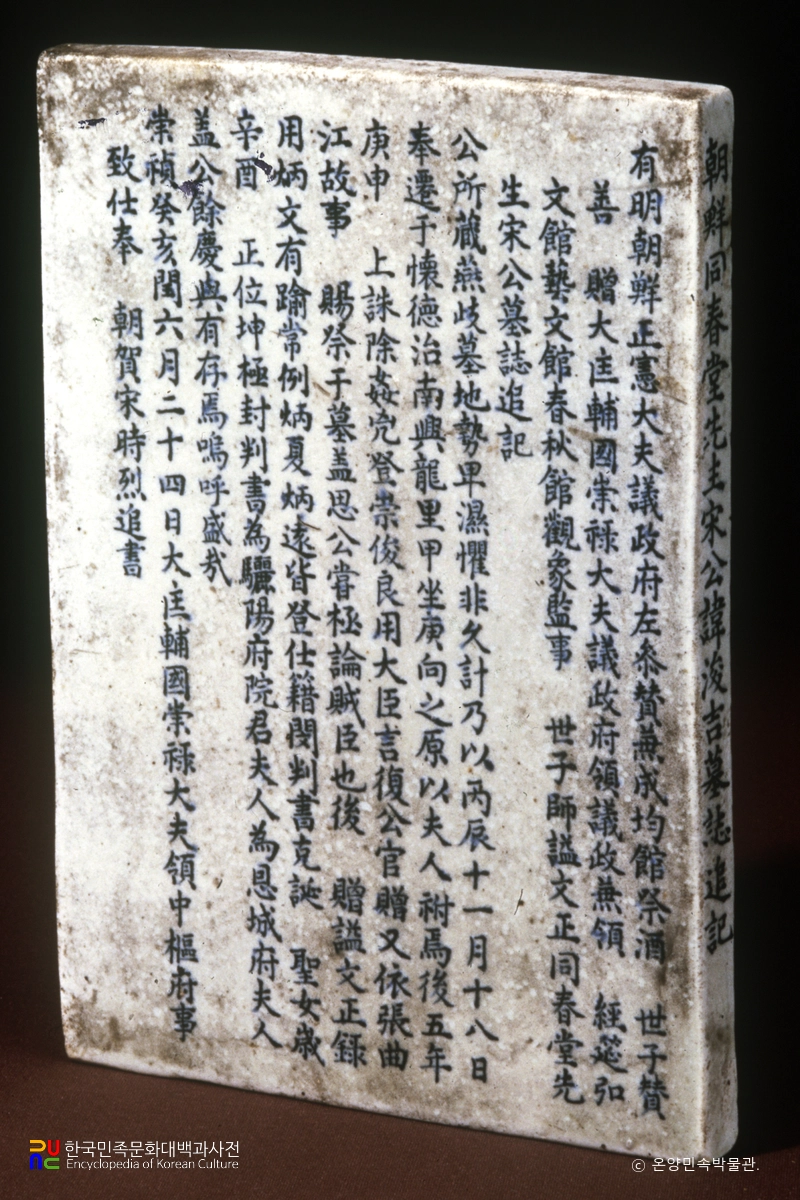 朝鮮同春堂先生宋公諱浚吉墓誌追記
有明朝鮮正憲大夫議政府左叅贊兼成均館祭酒 世子贊
善 贈大匡輔國崇祿大夫議政府領議政兼領 經筵弘
文館藝文館春秋館觀象監事 世子師謚文正同春堂先
生宋公墓誌追記
公所藏燕岐墓地勢卑濕懼非久計乃以丙辰十一月十八日
奉遷于懷德治南興龍里甲坐庚向之原以夫人祔焉後五年
庚申 上誅除姦兇登崇俊良用大臣言復公官贈又依張曲
江故事 賜祭于墓盖思公嘗極論賊臣也後 贈謚文正錄
用炳文有踰常例炳夏炳遠皆登仕籍閔判書克誕 聖女歲
辛酉 正位坤極封判書為驪陽府院君夫人為恩城府夫人
盖公餘慶與有存焉嗚呼盛哉
崇禎癸亥閏六月二十四日大匡輔國崇祿大夫領中樞府事
致仕奉 朝賀宋時烈追書
한국민족문화대백과사전
Encyclopedia of Korean Culture
ⓒ 온양민속박물관.